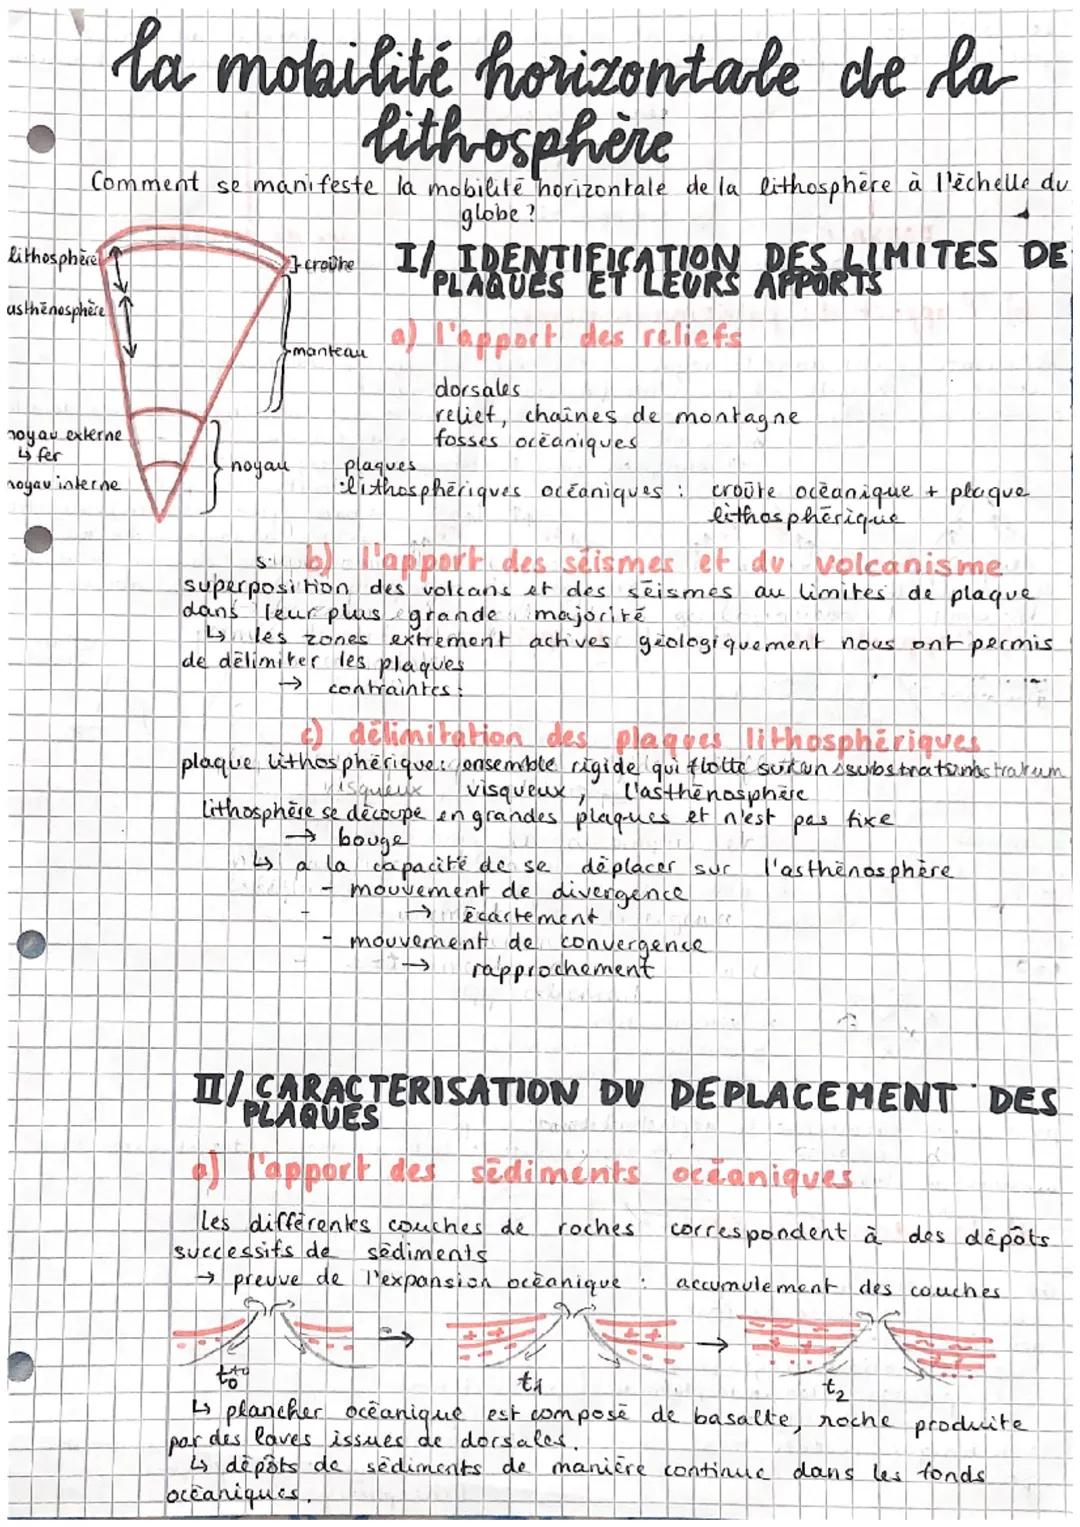 la mobilité horizontale de la
lithosphère
Comment se manifeste la mobilité horizontale de la lithosphère à l'échelle du
globe ?
lithosphère
croûte
asthénosphère
manteau
noyau externe
↳ fer
noyau
noyau interne
I/ IDENTIFICATION DES LIMITES DE
PLAQUES ET LEURS APPORTS
a) l'apport des reliefs
dorsales
relief, chaînes de montagne
fosses océaniques
plaques
lithosphériques océaniques : croûte océanique + plaque
lithosphérique
b) l'apport des séismes et du volcanisme
superposition des volcans et des séismes au limites de plaque
dans leur plus grande majorité
↳ les zones extrement actives géologiquement nous ont permis
de délimiter les plaques
→ contraintes :
c) délimitation des plaques lithosphériques
plaque lithosphérique : ensemble rigide qui flotte sur un substratum
visqueux, l'asthénosphère
lithosphère se découpe en grandes plaques et n'est pas fixe
→ bouge
↳ a la capacité de se déplacer sur l'asthénosphère
- mouvement de divergence
→ écartement
- mouvement de convergence
→ rapprochement
II/ CARACTERISATION DU DEPLACEMENT DES
PLAQUES
a) l'apport des sédiments océaniques
les différentes couches de roches correspondent à des dépôts
successifs de sédiments
→ preuve de l'expansion océanique : accumulement des couches
t0 t1 t2
↳ plancher océanique est composé de basalte, roche produite
par des laves issues de dorsales.
↳ dépôts de sédiments de manière continue dans les fonds
océaniques.